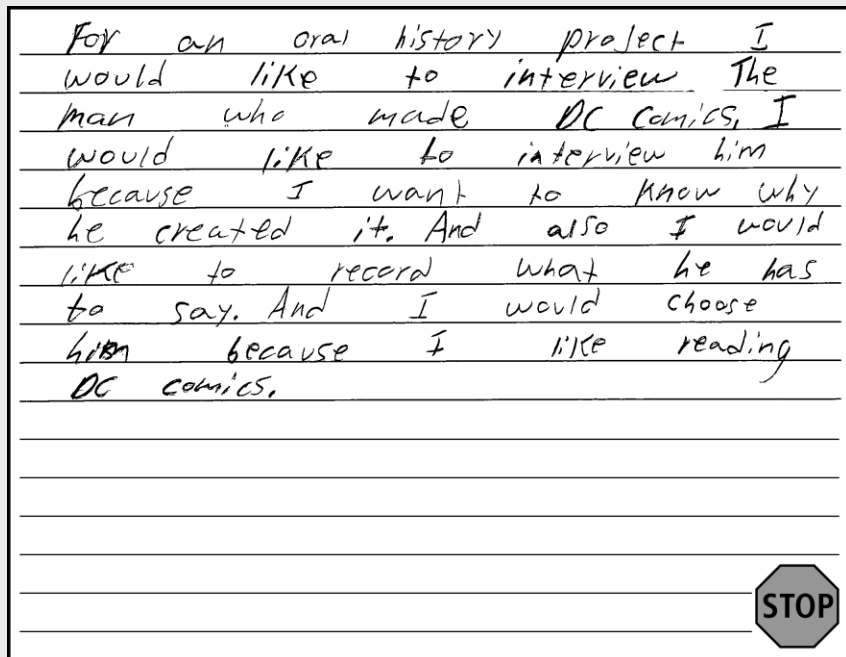 For an oral history project I
would like to interview The
man who made DC Comics, I
would like to interview him
because I want to know why
he created it. And also I would
like to record what he has
to say. And I would choose
him because I like reading
DC comics.
STOP